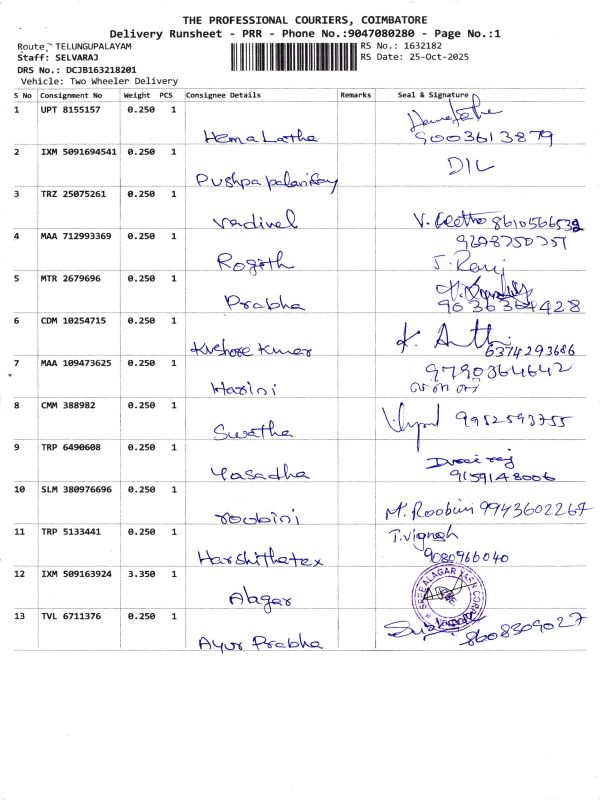 THE PROFESSIONAL COURIERS, COIMBATORE
Delivery Runsheet - PRR - Phone No.:9047080280 - Page No.:1
Route, TELUNGUPALAYAM RS No.: 1632182
Staff: SELVARAJ RS Date: 25-Oct-2025
DRS No.: DCJB163218201
Vehicle: Two Wheeler Delivery
S No Consignment No Weight PCS Consignee Details Remarks Seal & Signature
1 UPT 8155157 0.250 1
Hema Latha 9003613879
2 IXM 5091694541 0.250 1 DIL
Pushpa palanisamy
3 TRZ 25075261 0.250 1
Vadivel V. Geetha 8610566532
4 MAA 712993369 0.250 1 9698750751
Rogith J. Ranj
5 MTR 2679696 0.250 1
Prabha 9036364428
6 CDM 10254715 0.250 1 K.
Kishore Kumar 6374293686
7 MAA 109473625 0.250 1 9790364642
Harini
8 CMM 388982 0.250 1 9952593755
Swatha
9 TRP 6490608 0.250 1 Durai raj
Yasadha 9159148006
10 SLM 380976696 0.250 1
roobini M. Roobini 9943602267
11 TRP 5133441 0.250 1 T. Vignesh
Harshithatex 9080966040
12 IXM 509163924 3.350 1 SREE ALAGAR
Alagar
13 TVL 6711376 0.250 1
Ayur Prabha 8608309027